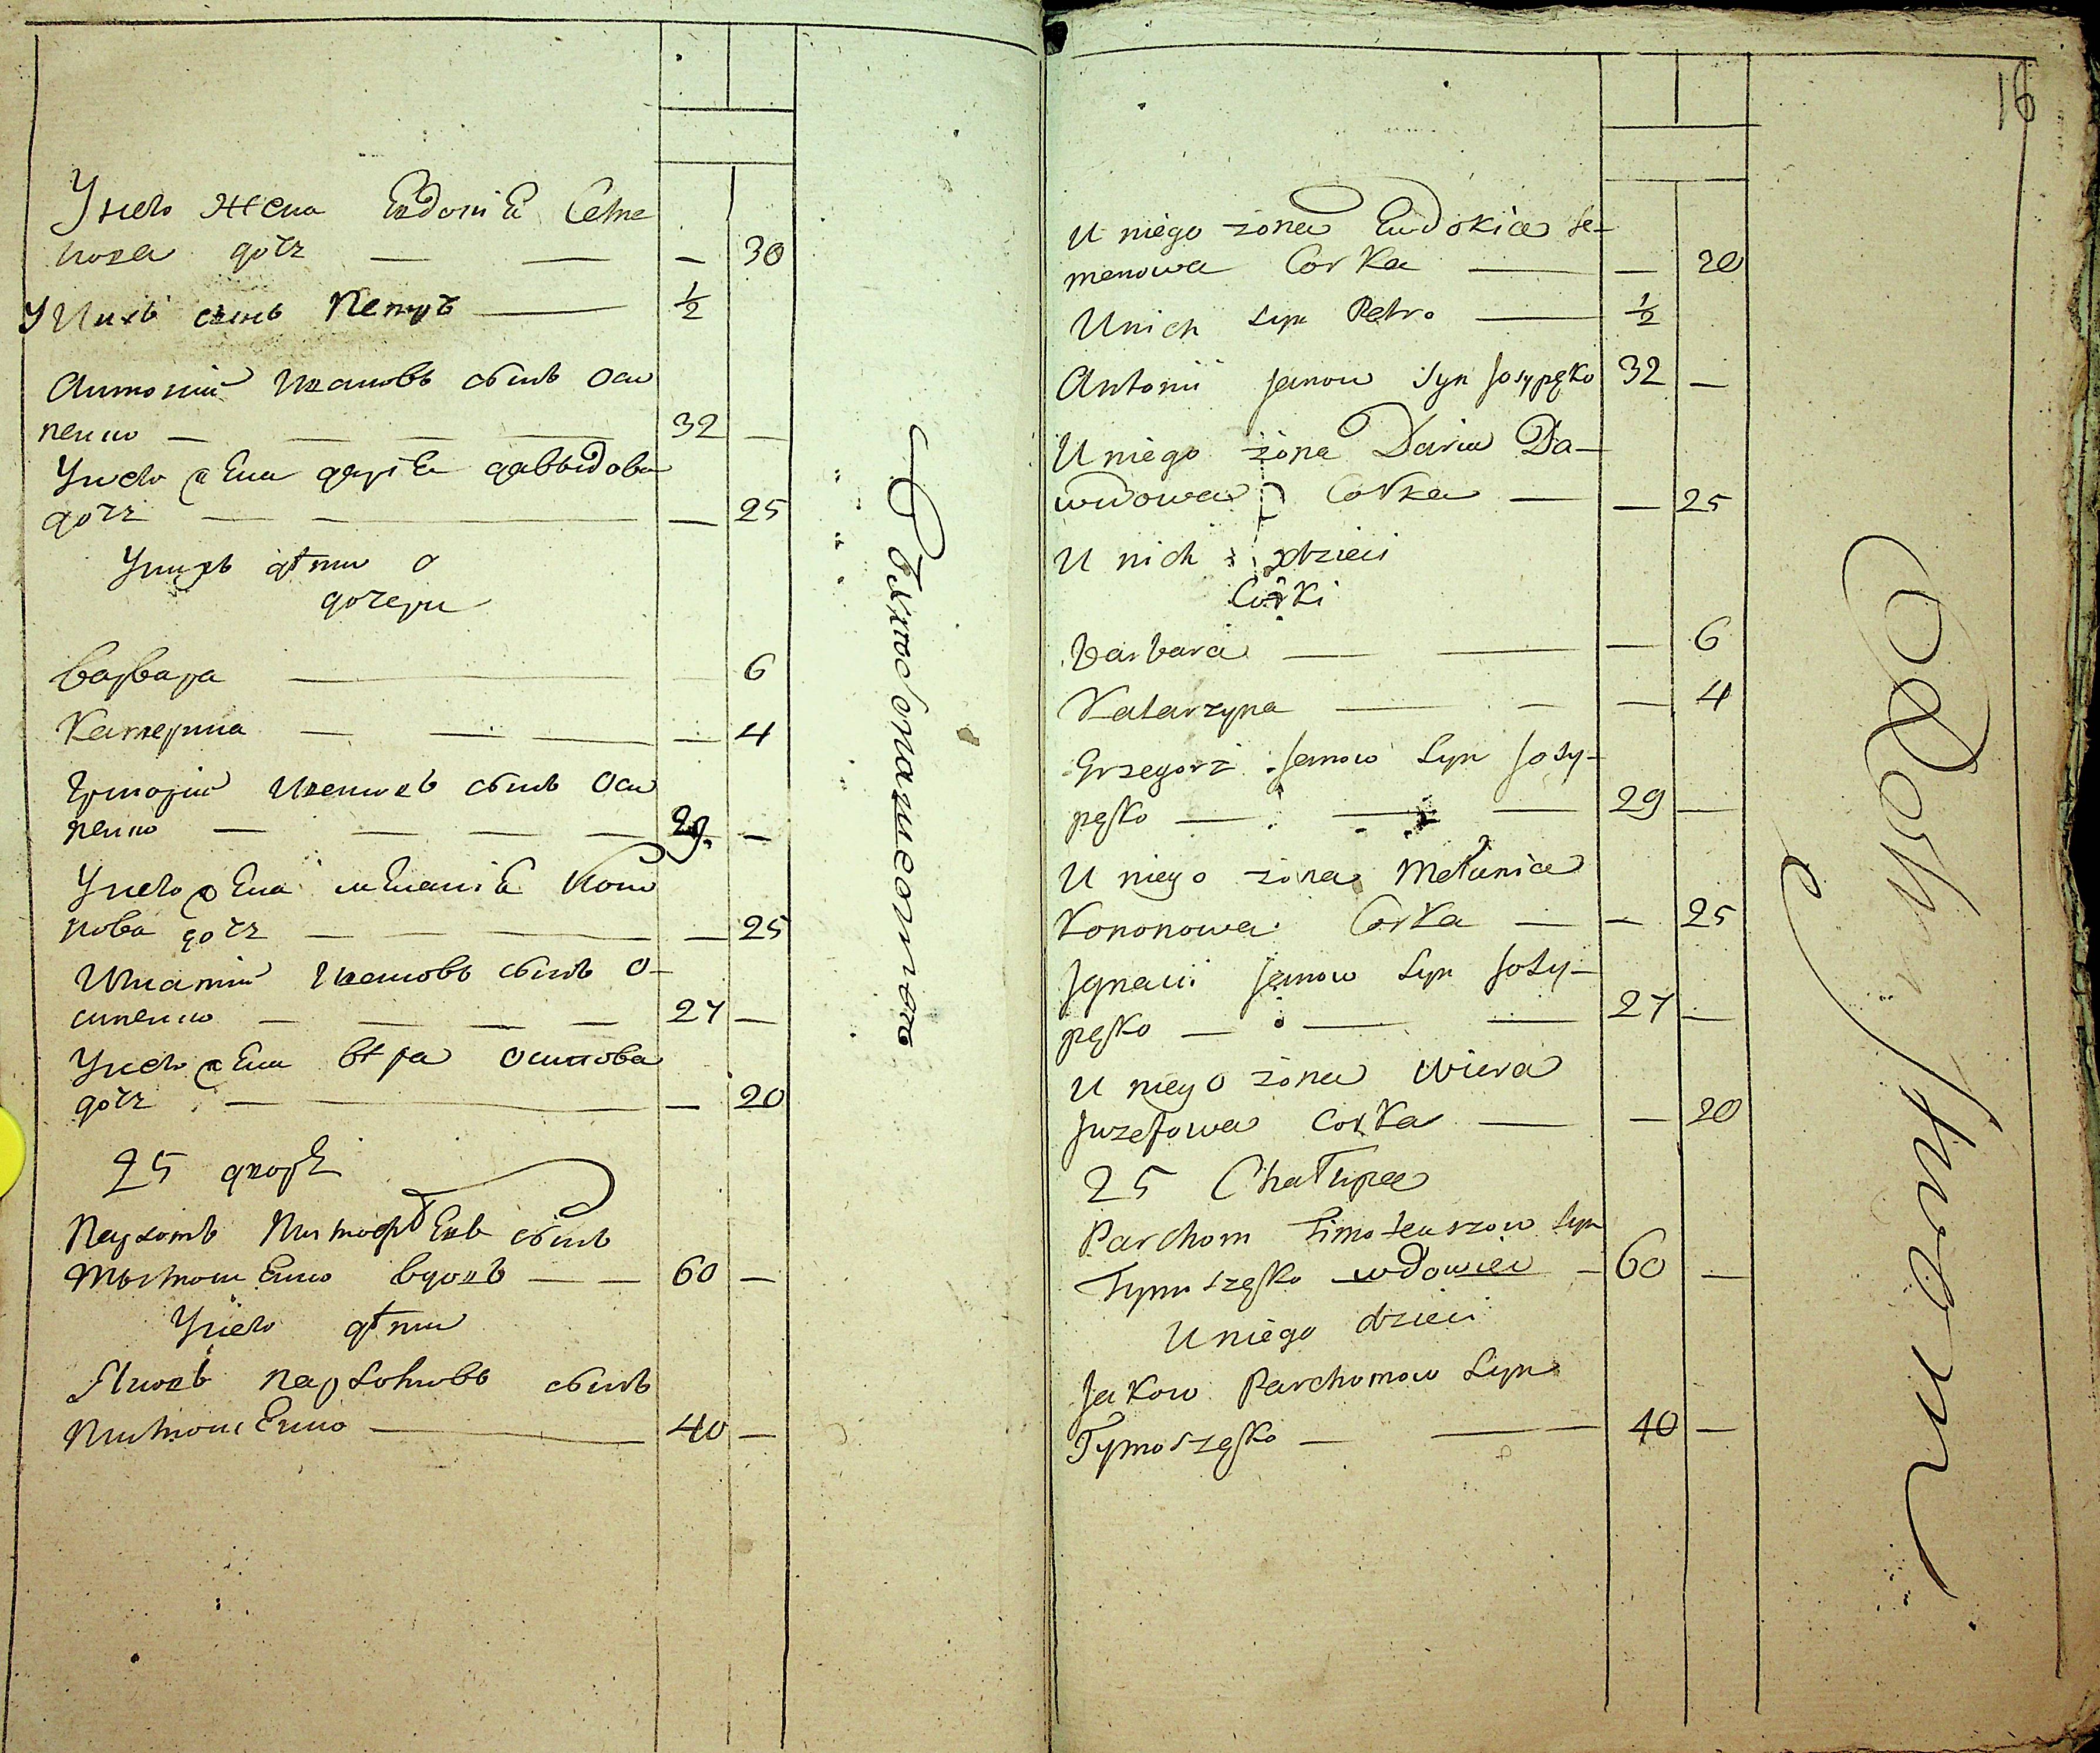 У него жена Евдокия Семе
нова дочь — — — 30
У нихъ сынъ Петръ — ½
Антоний Ивановъ сынъ Оси
пенко — — — — 32 —
У него жена Дария Давыдова
дочь — — — — 25
У нихъ дѣти
дочери
Варвара — — 6
Катерина — — — — 4
Григорий Ивановъ сынъ Оси
пенко — — — — 29 —
У него жена Мелания Коно
нова дочь — — — — 25
Игнатий Ивановъ сынъ О-
сипенко — — — — 27 —
У него жена Вѣра Осипова
дочь — — — 20
25 дворъ
Пархомъ Тимофѣевъ сынъ
Тимошенко вдовъ — — 60 —
У него дѣти
Яковъ Пархомовъ сынъ
Тимошенко — 40 —
16
U niego żona Eudokia Se-
menowa Corka — — 20
U nich Syn Petro — ½
Antonii Janow Syn Josypęko 32 —
U niego żona Daria Da-
widowa Corka — — 25
U nich dzieci
Corki
Barbara — — — 6
Katarzyna — — — 4
Grzegorz Janow Syn Josy-
pęko — — — 29 —
U niego żona Mełania
Kononowa Corka — — 25
Jgnacii Janow Syn Josy-
pęko — — — 27 —
U niego żona Wiera
Juzefowa Corka — — 20
25 Chałupa
Parchom Timoteuszow Syn
Tymoszęko wdowiec — 60 —
U niego dzieci
Jakow Parchomow Syn
Tymoszęko — — 40 —